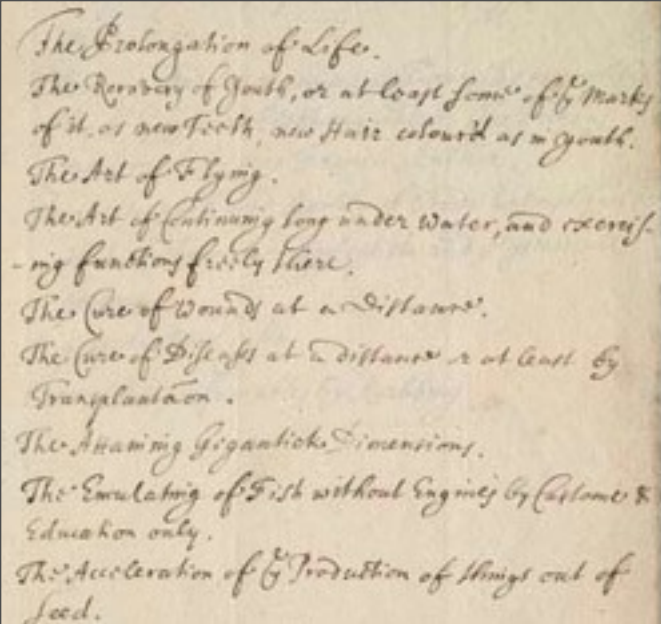 The Prolongation of Life.
The Recovery of Youth, or at least some of ye Marks
of it, as new Teeth, new Hair colour'd as in youth.
The Art of Flying.
The Art of Continuing long under water, and exercis-
-ing functions freely there.
The Cure of Wounds at a Distance.
The Cure of Diseases at a distance or at least by
Transplantation.
The Attaining Gigantick Dimensions.
The Emulating of Fish without Engines by Custome &
Education only.
The Acceleration of ye Production of things out of
Seed.